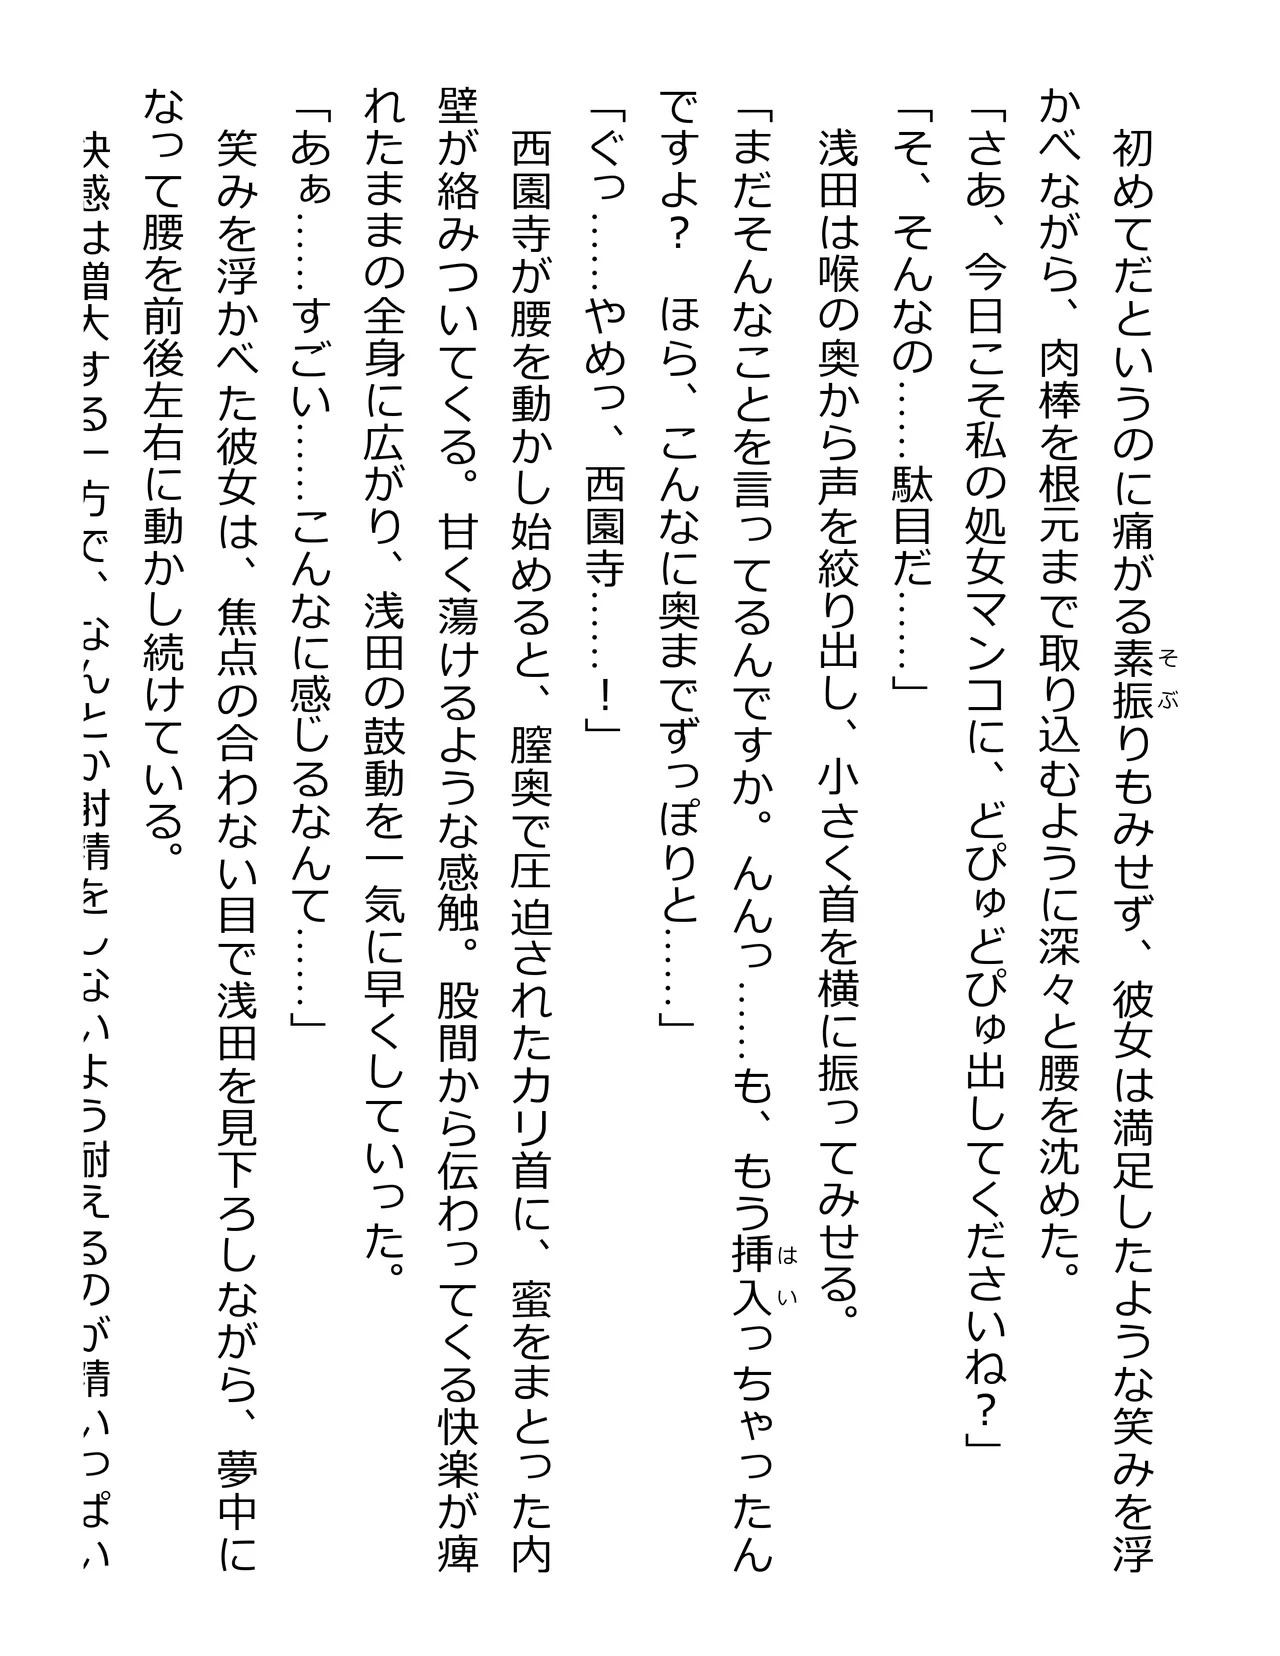 初めてだというのに痛がる素振りもみせず、彼女は満足したような笑みを浮
そぶ
かべながら、肉棒を根元まで取り込むように深々と腰を沈めた。
「さあ、今日こそ私の処女マンコに、どぴゅどぴゅ出してくださいね?」
「そ、そんなの……駄目だ……」
浅田は喉の奥から声を絞り出し、小さく首を横に振ってみせる。
「まだそんなことを言ってるんですか。んんっ……も、もう挿入っちゃったん
はい
ですよ? ほら、こんなに奥までずっぽりと……」
「ぐっ……やめっ、西園寺……!」
西園寺が腰を動かし始めると、膣奥で圧迫されたカリ首に、蜜をまとった内
壁が絡みついてくる。甘く蕩けるような感触。股間から伝わってくる快楽が痺
れたままの全身に広がり、浅田の鼓動を一気に早くしていった。
「あぁ……すごい……こんなに感じるなんて……」
笑みを浮かべた彼女は、焦点の合わない目で浅田を見下ろしながら、夢中に
なって腰を前後左右に動かし続けている。
快感は増大する一方で、なんとか射精をしないよう耐えるのが精いっぱい